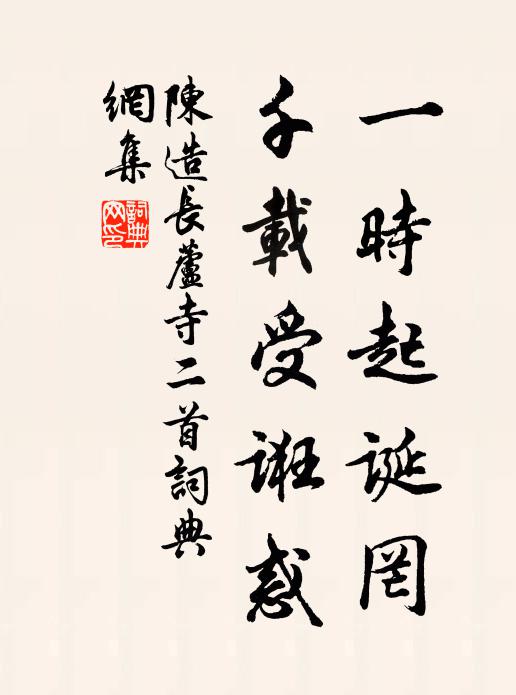 一時起誕罔
千載受誑惑
陳造長蘆寺二首詞典
網集
詞典網印